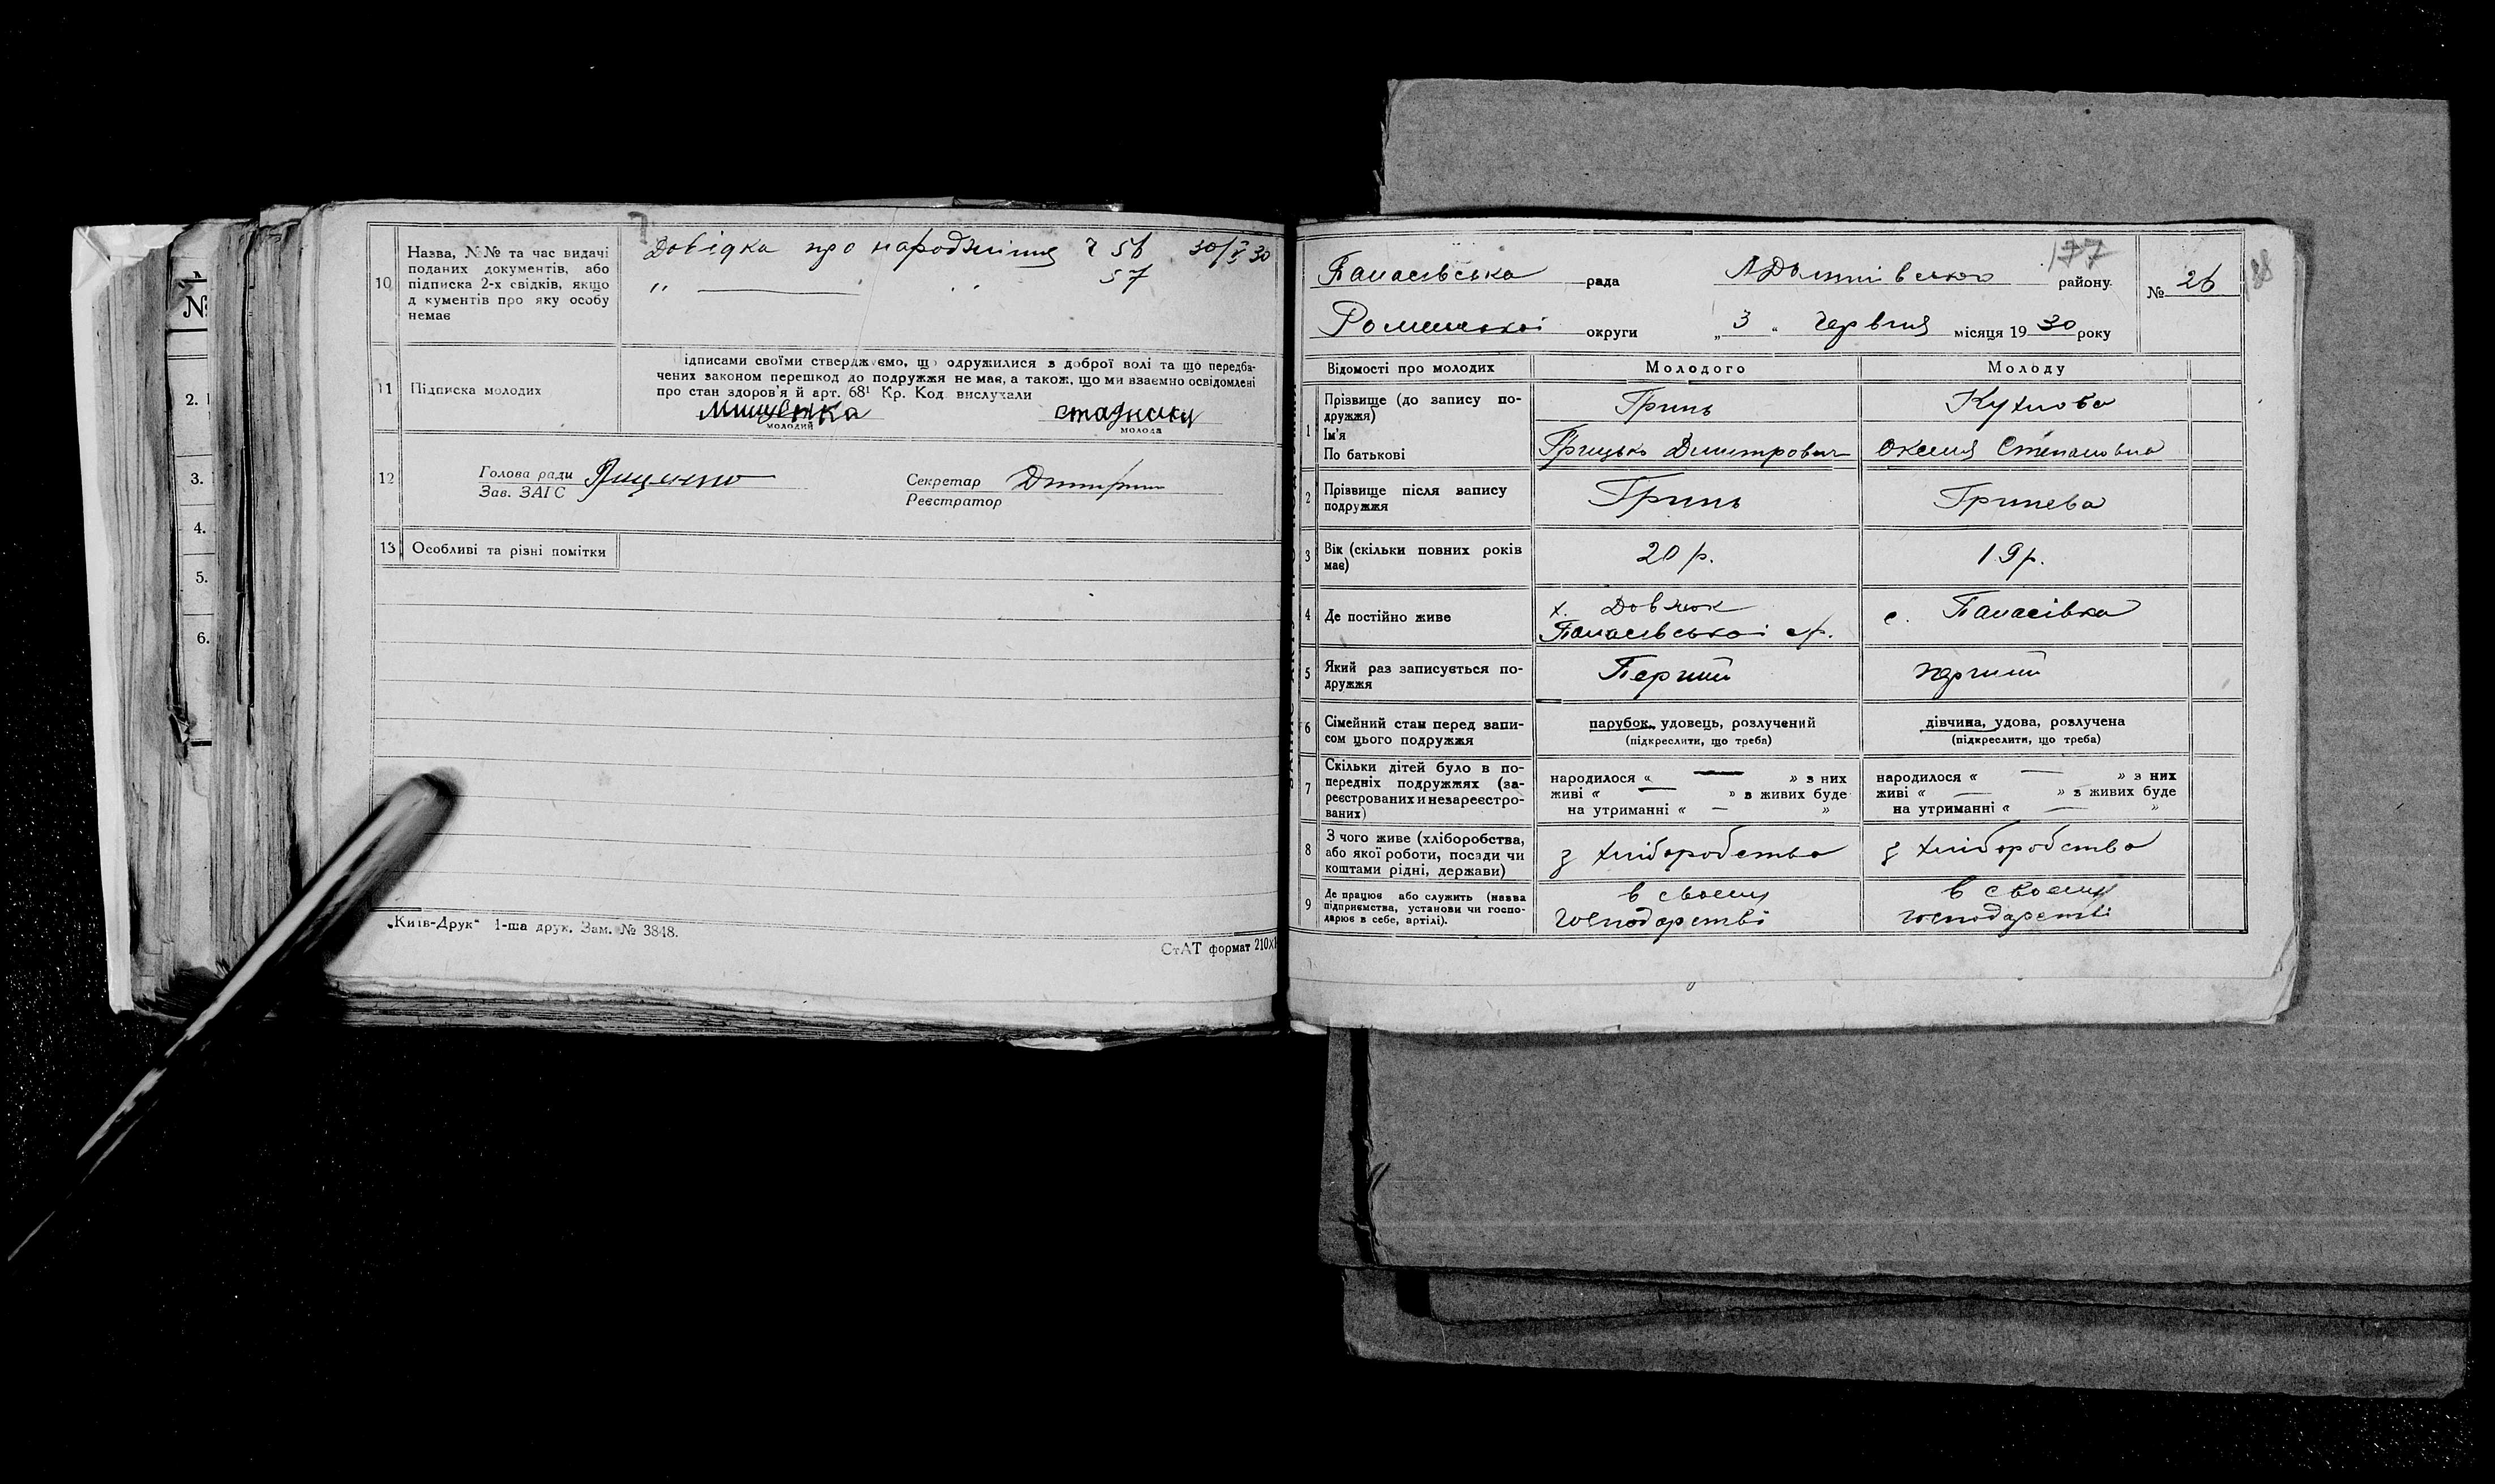 10 Назва, №№ та час видачі
поданих документів, або
підписка 2-х свідків, якщо
д кументів про яку особу
немає
Довідка про народження 56 30/V 30
" 57
11 Підписка молодих
ідписами своїми стверджуємо, що одружилися з доброї волі та що передба-
чених законом перешкод до подружжя не має, а також, що ми взаємно освідомлені
про стан здоров'я й арт. 68¹ Кр. Код вислухали
молодий молода
12 Голова ради
Зав. ЗАГС
Секретар
Реєстратор
13 Особливі та різні помітки
„Київ-Друк“ 1-ша друк. Зам. № 3848.
СтАТ формат 210х
№
2.
3.
4.
5.
6.
177
Панасівська рада району № 26
Роменської округи „3“ червня місяця 1930 року
Відомості про молодих Молодого Молоду
1 Прізвище (до запису по-
дружжя) Гринь Кухнова
Ім'я
По батькові Грицько Димитрович Оксения Степановна
2 Прізвище після запису
подружжя Гринь Гринева
3 Вік (скільки повних років
має) 20 р. 19 р.
4 Де постійно живе х. Довжок с. Панасівка
Панасівської с/р.
5 Який раз записується по-
дружжя Перший перший
6 Сімейний стан перед запи-
сом цього подружжя
парубок, удовець, розлучений
(підкреслити, що треба)
дівчина, удова, розлучена
(підкреслити, що треба)
7 Скільки дітей було в по-
передніх подружжях (за-
реєстрованих и незареєстро-
ваних)
народилося « — » з них
живі « — » з живих буде
на утриманні « — »
народилося « — » з них
живі « — » з живих буде
на утриманні « — »
8 З чого живе (хліборобства,
або якої роботи, посади чи
коштами рідні, держави)
з хліборобства з хліборобства
9 Де працює або служить (назва
підприємства, установи чи госпо-
дарює в себе, артілі).
в своему
господарстві
в своему
господарстві